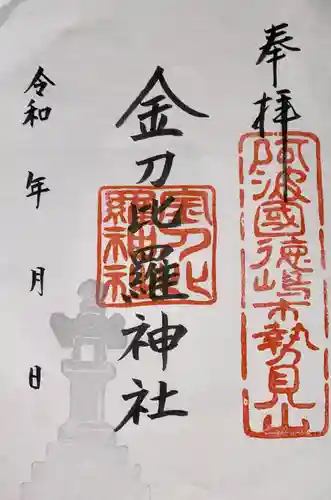 奉拝
阿波國徳嶋市勢見山
金刀比羅神社
金刀比羅神社
令和 年 月 日